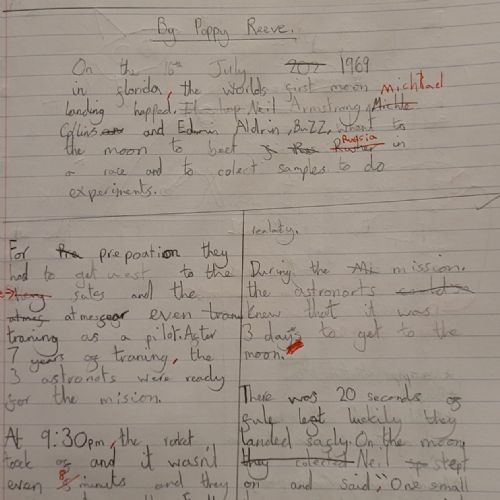 By Poppy Reeve.
On the 16th July 202 1969
in florida, the worlds first moon Michael
landing happed. Neil Armstrong, Michle
Collins and Edwin Aldrin, BuZZ, whent to
the moon to beet Russia in
a race and to colect samples to do
experiments.
For Pra prepoation they
had to get uest to the
sutes and the
atmes atmesger even train
traning as a pilot. Aster
7 years of traning, the
3 astronots were ready
for the mision.
At 9:30pm, the roket
took of and it wasn't
even 5 8 minuts and they
realaty.
During the Mi mission.
the astronorts could
knew that it was
3 days to get to the
moon.
There was 20 seconds of
fule left luckily they
landed safly. On the moon,
they colected Neil sp stept
on and said, "One small